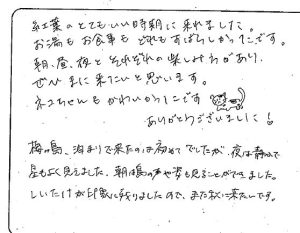 紅葉のとてもいい時期に来れました。
お湯もお食事もどれもすばらしかったです。
朝、昼、夜とそれぞれの楽しみがあり、
ぜひまた来たいと思います。
ネコちゃんもかわいかったです
ありがとうございました!
梅ヶ島、泊まりで来たのは初めてでしたが、夜は静かで
星もよく見えました。朝は鳥の声や姿も見ることができました。
しいたけが印象に残りましたので、また秋に来たいです。